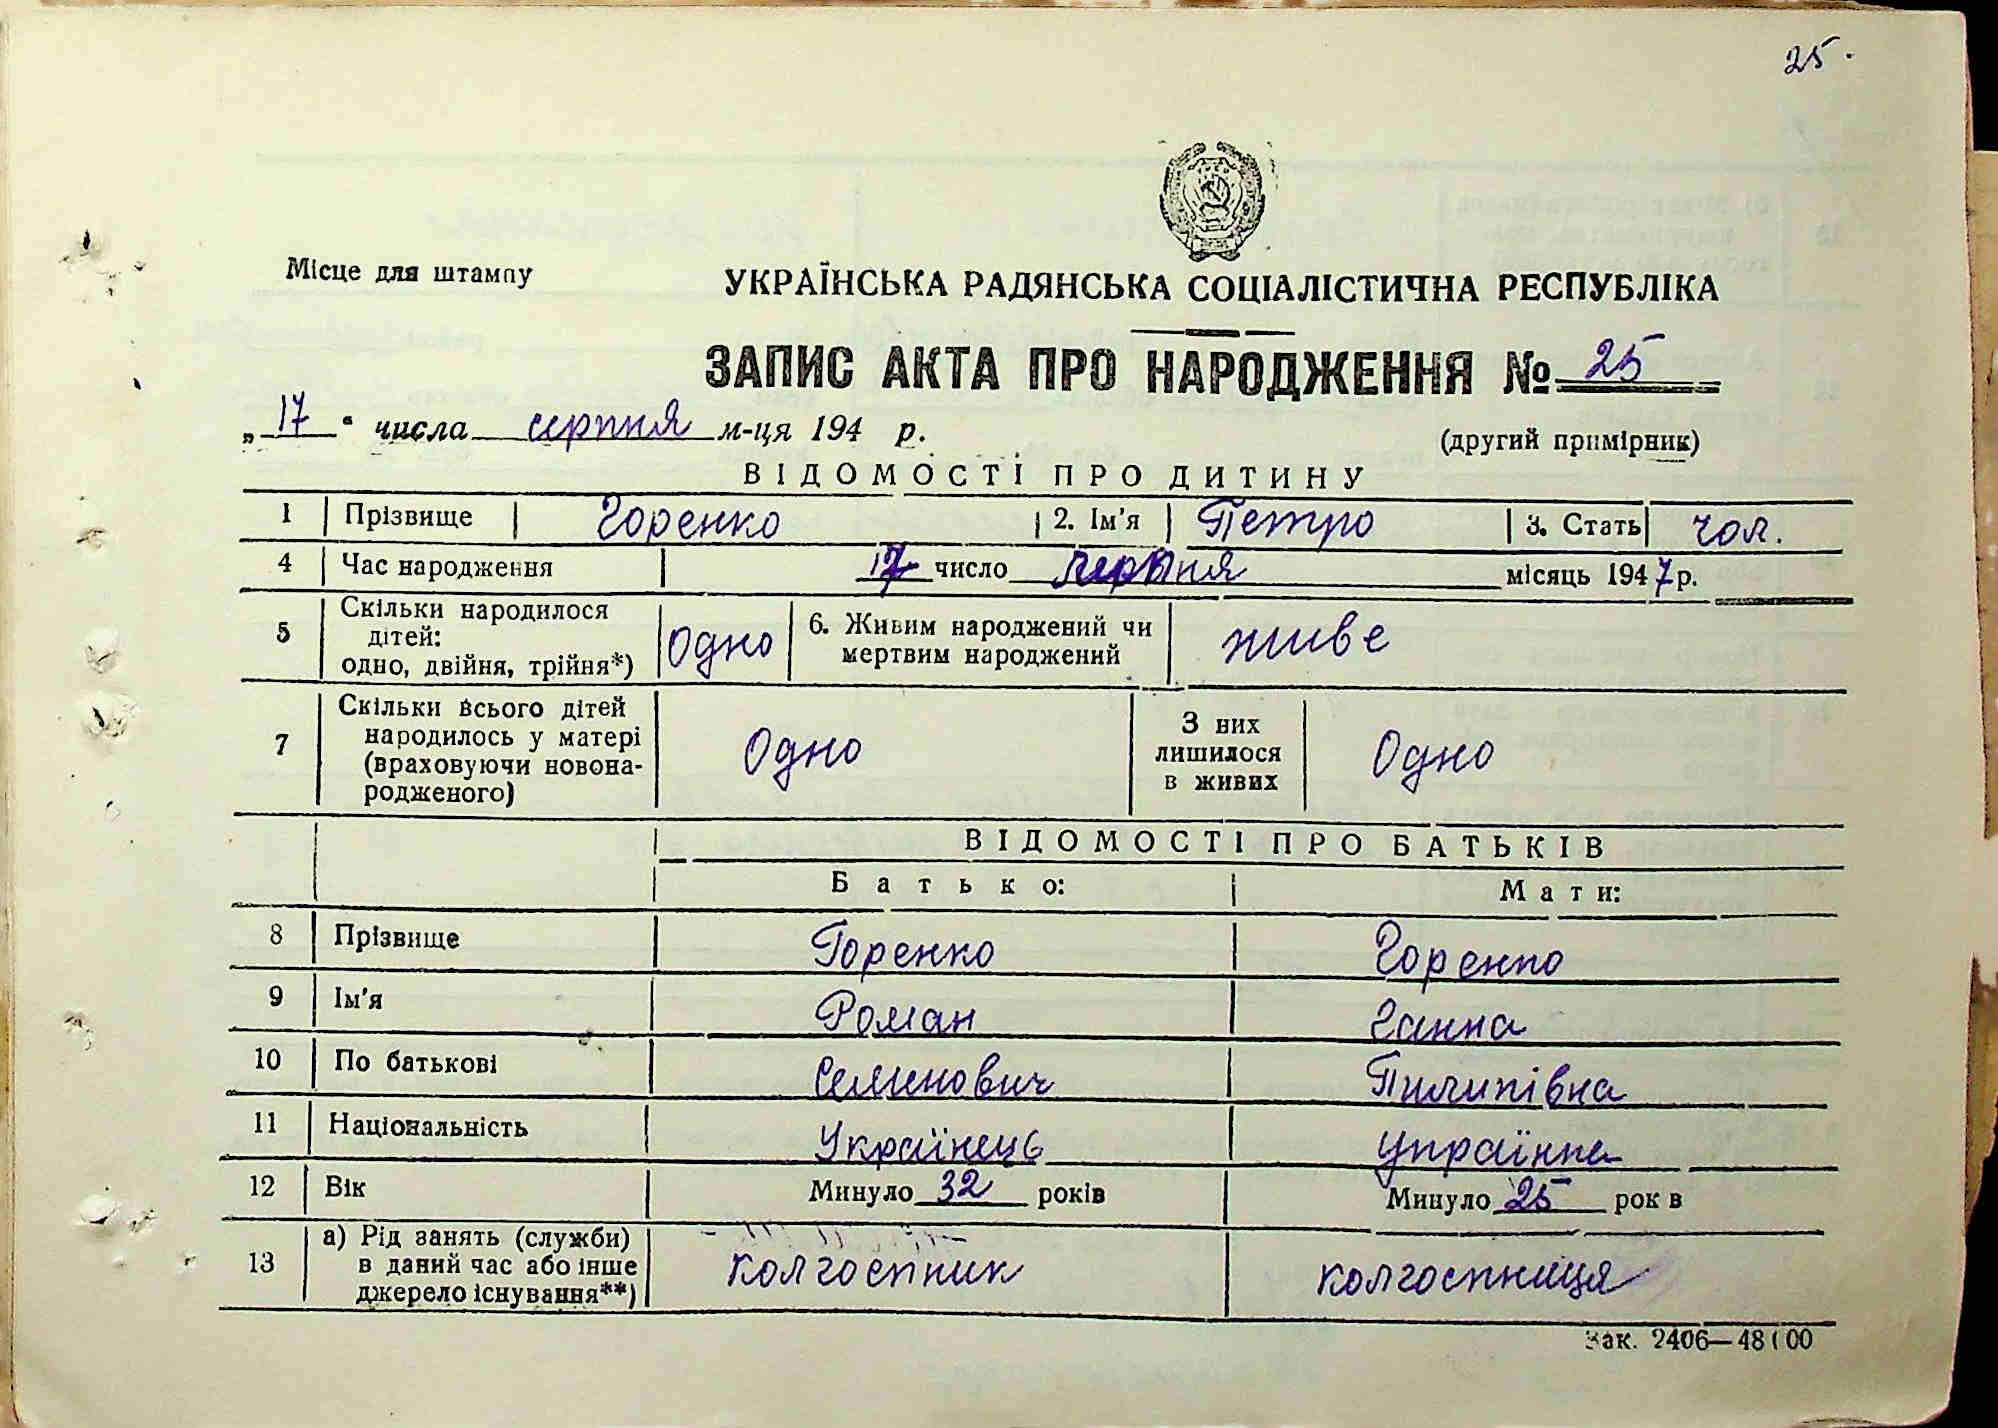 25.
Місце для штампу
УКРАЇНСЬКА РАДЯНСЬКА СОЦІАЛІСТИЧНА РЕСПУБЛІКА
ЗАПИС АКТА ПРО НАРОДЖЕННЯ № 25
„17“ числа серпня м-ця 194 р.
(другий примірник)
ВІДОМОСТІ ПРО ДИТИНУ
1 Прізвище Горенко 2. Ім'я Петро 3. Стать чол.
4 Час народження 17 число місяць 1947 р.
5 Скільки народилося дітей: одно, двійня, трійня*) Одно 6. Живим народжений чи мертвим народжений живе
7 Скільки всього дітей народилось у матері (враховуючи новонародженого) Одно З них лишилося в живих Одно
ВІДОМОСТІ ПРО БАТЬКІВ
Батько: Мати:
8 Прізвище Горенко Горенко
9 Ім'я Роман Ганна
10 По батькові Семенович Пилипівна
11 Національність Українець українка
12 Вік Минуло 32 років Минуло 25 рок в
13 а) Рід занять (служби) в даний час або інше джерело існування**) колгоспник колгоспниця
Зак. 2406—48 00